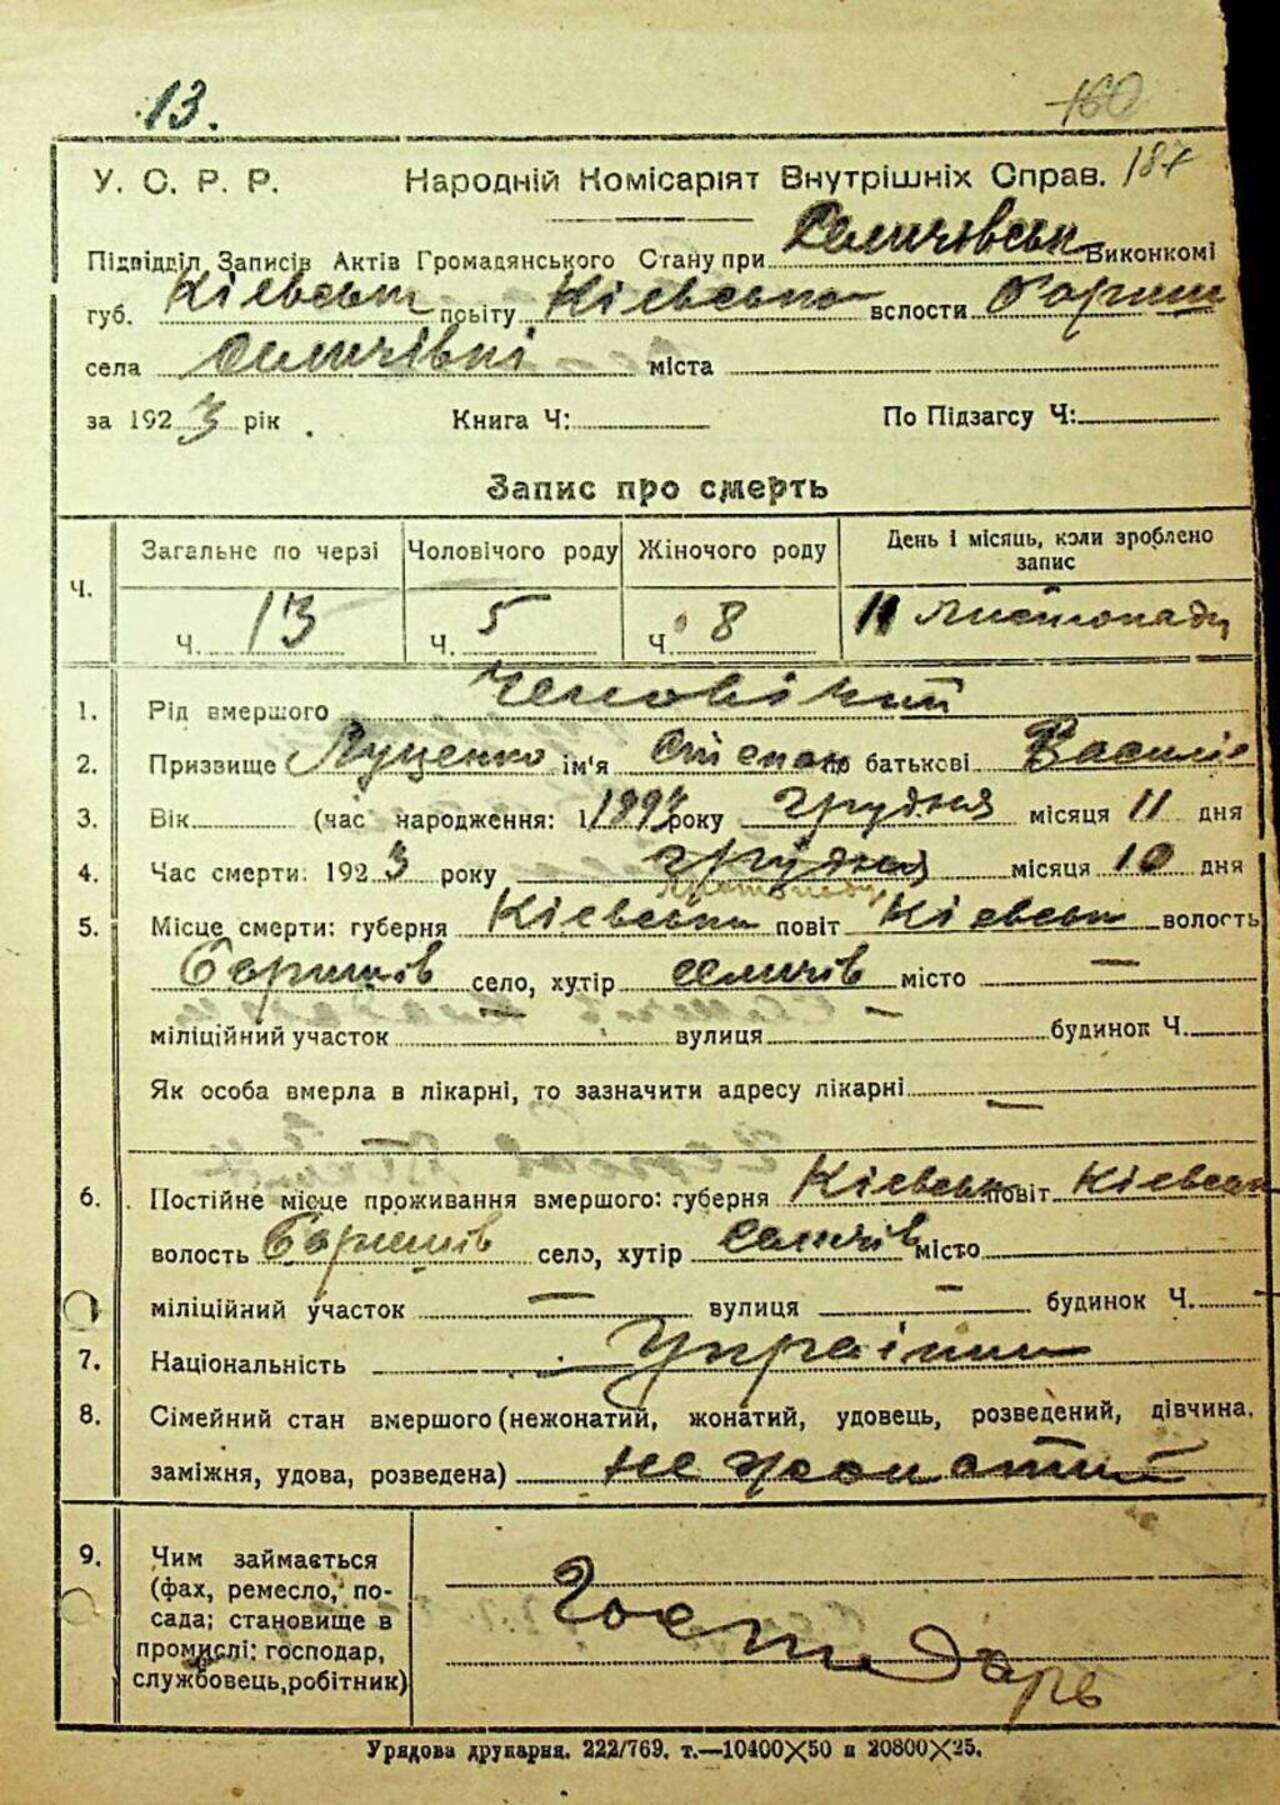 13. 160
У. С. Р. Р. Народній Комісаріят Внутрішніх Справ. 187
Підвідділ Записів Актів Громадянського Стану при Селичівськ Виконкомі
губ. Кієвськ повіту Кієвська вслости Бориш
села Селичівці міста
за 1923 рік Книга Ч: По Підзагсу Ч:
Запис про смерть
Ч. Загальне по черзі Чоловічого роду Жіночого роду День і місяць, коли зроблено запис
Ч. 13 Ч. 5 Ч. 8 11 листопаду
1. Рід вмершого Человічий
2. Призвище Луценко ім'я Стіепан по батькові Василіе
3. Вік (час народження: 1 189 року грудня місяця 11 дня
4. Час смерти: 1923 року грудня місяця 10 дня
листопаду
5. Місце смерти: губерня Кієвська повіт Кієвськ волость
Боришів село, хутір селичів місто —
міліційний участок — вулиця — будинок Ч.
Як особа вмерла в лікарні, то зазначити адресу лікарні —
6. Постійне місце проживання вмершого: губерня Кієвськ повіт Кієвськ
волость Боришів село, хутір Селичів місто
міліційний участок — вулиця — будинок Ч. —
7. Національність Україниц
8. Сімейний стан вмершого (нежонатий, жонатий, удовець, розведений, дівчина,
заміжня, удова, розведена) не жонатий
9. Чим займається
(фах, ремесло, по-
сада; становище в
промислі: господар,
службовець, робітник)
Господарь
Урядова друкарня. 222/769. т.—10400X50 и 20800X25.